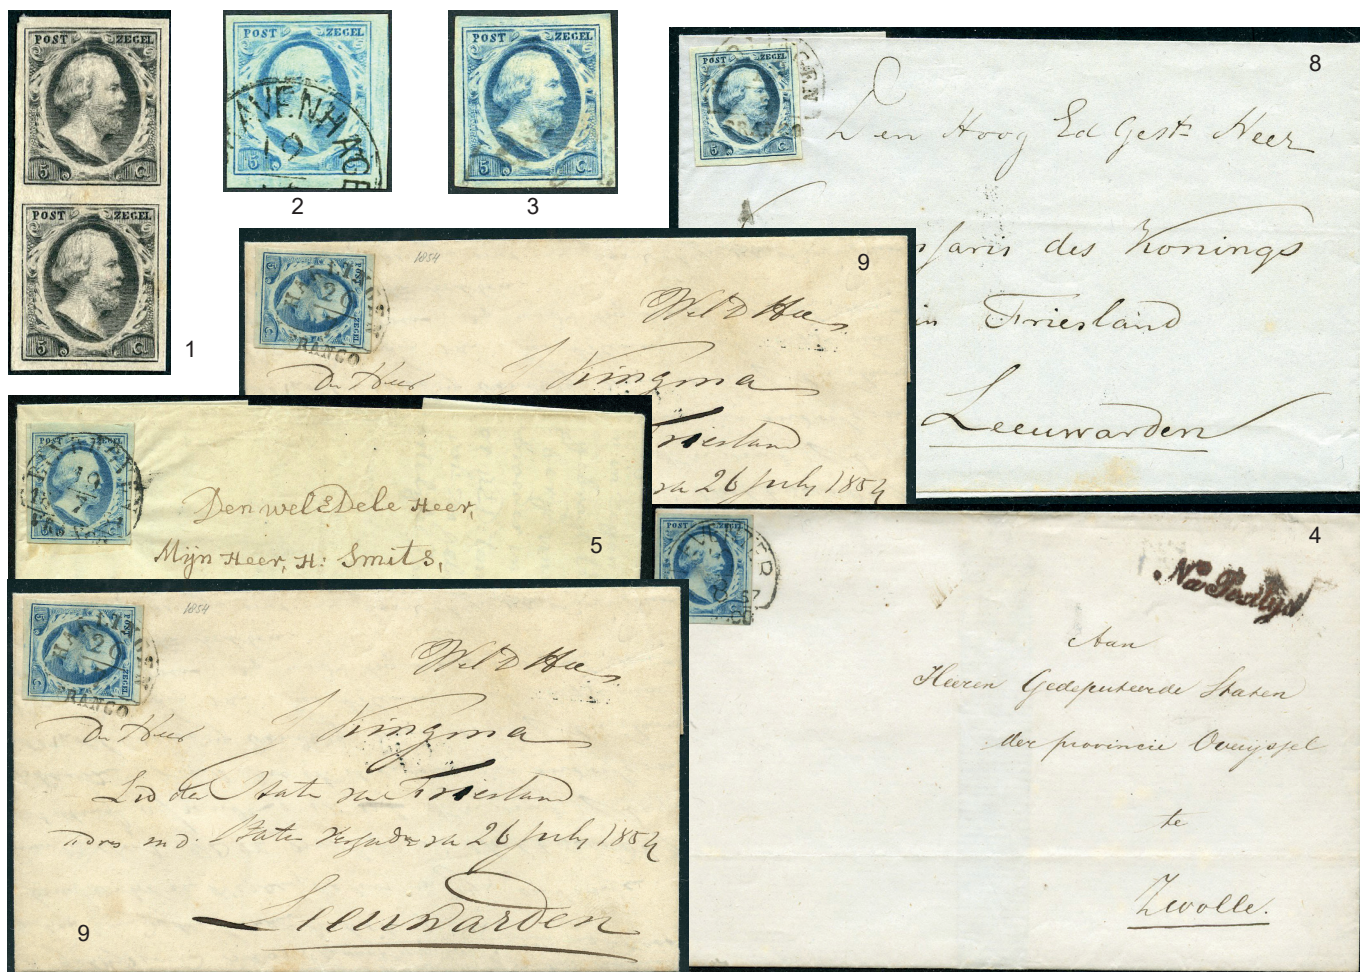 POST ZEGEL
5 C.
POST ZEGEL
5 C.
1
POST ZEGEL
AVENHAGE
19
5 C.
2
POST ZEGEL
5 C.
3
POST ZEGEL
5 C.
8
Den Hoog Ed Gestr. Heer
saris des Konings
in Friesland
Leeuwarden
POST ZEGEL
5 C.
HARLINGEN
20
FRANCO
1854
9
Kingma
Friesland
26 July 1854
POST ZEGEL
19
7
Den wel Edele Heer,
Mijn Heer, H: Smits,
5
POST ZEGEL
57
4
Na Posttijd
Aan
Heeren Gedeputeerde Staten
der provincie Overijssel
te
Zwolle.
POST ZEGEL
5 C.
HARLINGEN
20
FRANCO
1854
De Heer Kingma
Lid der State van Friesland
26 July 1854
Leeuwarden
9